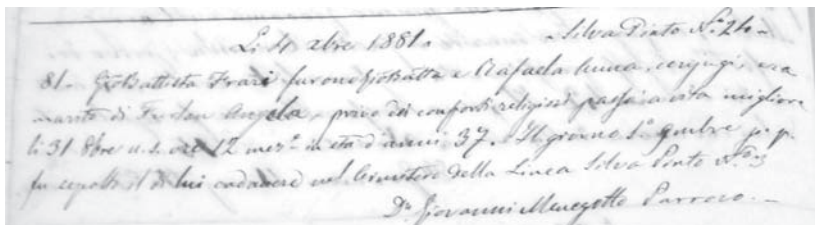 Li 4 xbre 1881. Silva Pinto Nº 24
81. GioBattista Frari furono GioBatta e Rafaela Anna, conjugi, era
marito di Furlan Angela, privo dei conforti religiosi passò a vita migliore
li 31 8bre u.s. ore 12 mer.e in età d'anni 37. Il giorno 1º 9mbre p.p.
fu sepolto il di lui cadavere nel Cimitero della Linea Silva Pinto Nº 3
Dn Giovanni Menegotto Parroco.